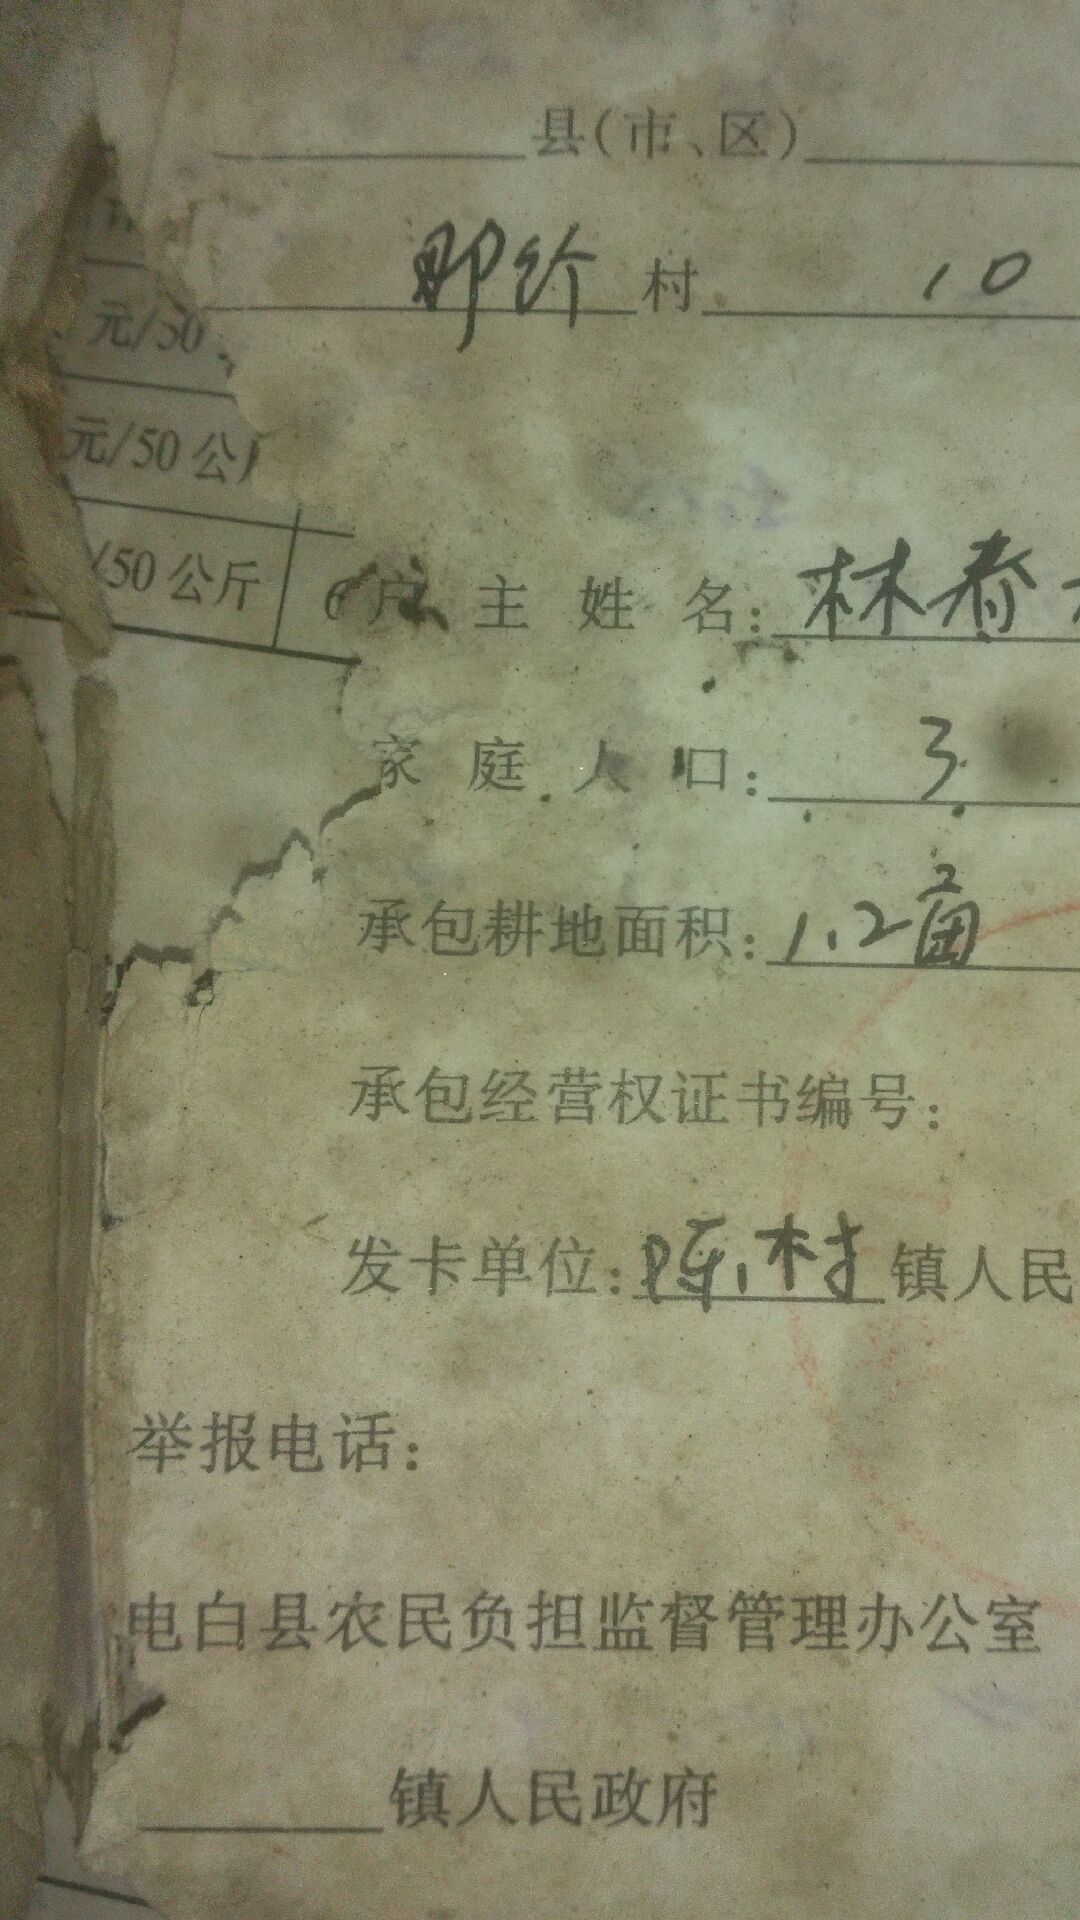 县(市、区)
那 村 10
元/50
元/50公
/50公斤 6
户主姓名:林春
家庭人口: 3
承包耕地面积:1.2亩
承包经营权证书编号:
发卡单位:陈村镇人民
举报电话:
电白县农民负担监督管理办公室
镇人民政府